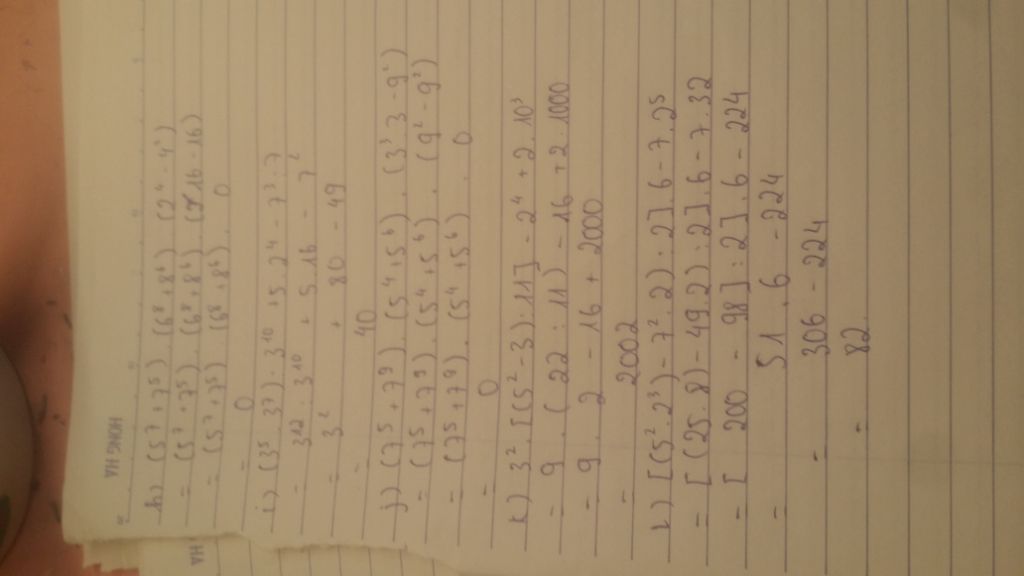 HONG HA
h) (5⁷ + 7⁵) . (6⁸ + 8⁶) . (2⁴ - 4²)
= (5⁷ + 7⁵) . (6⁸ + 8⁶) . (16 - 16)
= (5⁷ + 7⁵) . (6⁸ + 8⁶) . 0
= 0
i) (3⁵ . 3⁷) : 3¹⁰ + 5 . 2⁴ - 7³ : 7
= 3¹² : 3¹⁰ + 5 . 16 - 7²
= 3² + 80 - 49
= 40
j) (7⁵ + 7⁹) . (5⁴ + 5⁶) . (3³ . 3 - 9²)
= (7⁵ + 7⁹) . (5⁴ + 5⁶) . (9² - 9²)
= (7⁵ + 7⁹) . (5⁴ + 5⁶) . 0
= 0
k) 3² . [(5² - 3) : 11] - 2⁴ + 2 . 10³
= 9 . (22 : 11) - 16 + 2 . 1000
= 9 . 2 - 16 + 2000
= 2002
l) [(5² . 2³) - 7² . 2) : 2] . 6 - 7 . 2⁵
= [(25 . 8) - 49 . 2) : 2] . 6 - 7 . 32
= [ 200 - 98] : 2] . 6 - 224
= 51 . 6 - 224
= 306 - 224
= 82.
HA